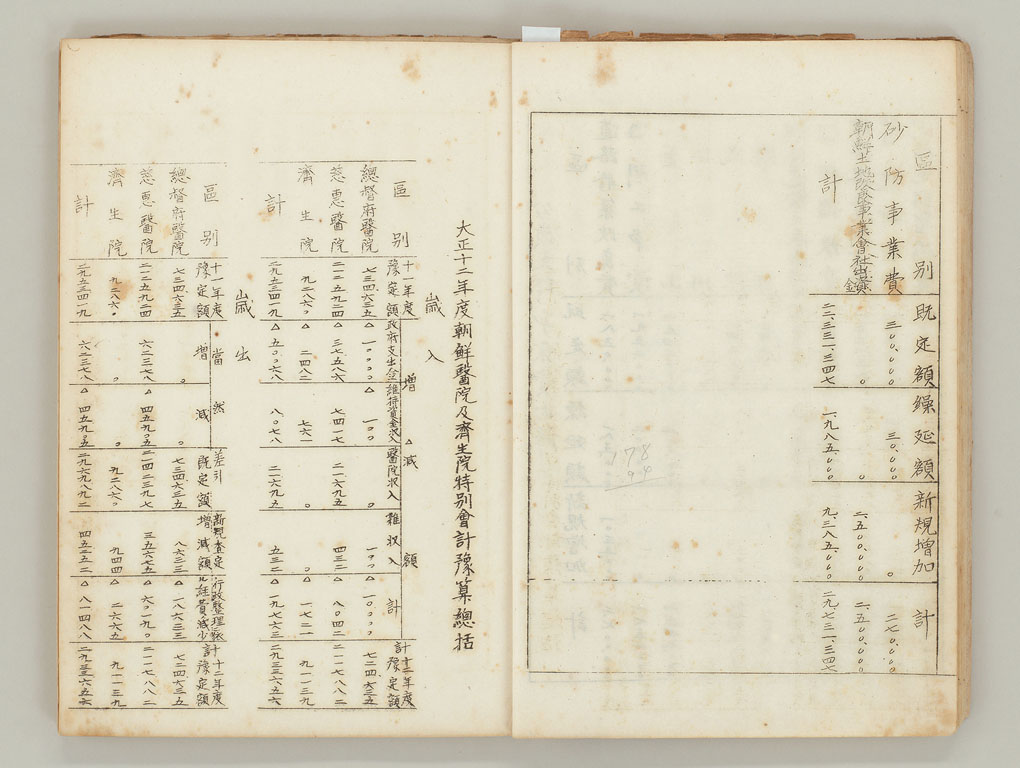 區別 既定額 繰延額 新規增加 計
砂防事業費 三〇〇,〇〇〇 三〇,〇〇〇 〇 二七〇,〇〇〇
朝鮮土地改良事業會社出資金 〇 〇 二,五〇〇,〇〇〇 二,五〇〇,〇〇〇
計 二二,三三一,三四七 一,九八五,〇〇〇 九,三八五,〇〇〇 二九,七三一,三四七
大正十二年度朝鮮醫院及濟生院特別會計豫算總括
歳入
區別 十一年度豫定額 增△減額 政府支出金 維持資金收入 醫院收入 雜收入 計 計十二年度豫定額
總督府醫院 七三四六三五 △一〇〇〇〇 △一〇〇 一〇〇 △一〇〇〇〇 七二四六三五
慈惠醫院 二一二五九二四 △三七五八六 七四一七 二一六九五 四三二 △八〇四二 二一一七八八二
濟生院 九二八六〇 △二四八二 七六一 〇 〇 △一七二一 九一一三九
計 二九五三四一九 △五〇〇六八 八〇七八 二一六九五 五三二 △一九七六三 二九三三六五六
歳出
區別 十一年度豫定額 當然 增 減 差引既定額 新規査定增減額 行政整理ニ依ル經費減少 計十二年度豫定額
總督府醫院 七三四六三五 〇 〇 七三四六三五 八六三三 △一八六三三 七二四六三五
慈惠醫院 二一二五九二四 六二三七八 △四五九〇五 二一四二三九七 三五六七五 △六〇一九〇 二一一七八八二
濟生院 九二八六〇 〇 〇 九二八六〇 九四四 △二六六五 九一一三九
計 二九五三四一九 六二三七八 △四五九〇五 二九六九八九二 四五二五二 △八一四八八 二九三三六五六